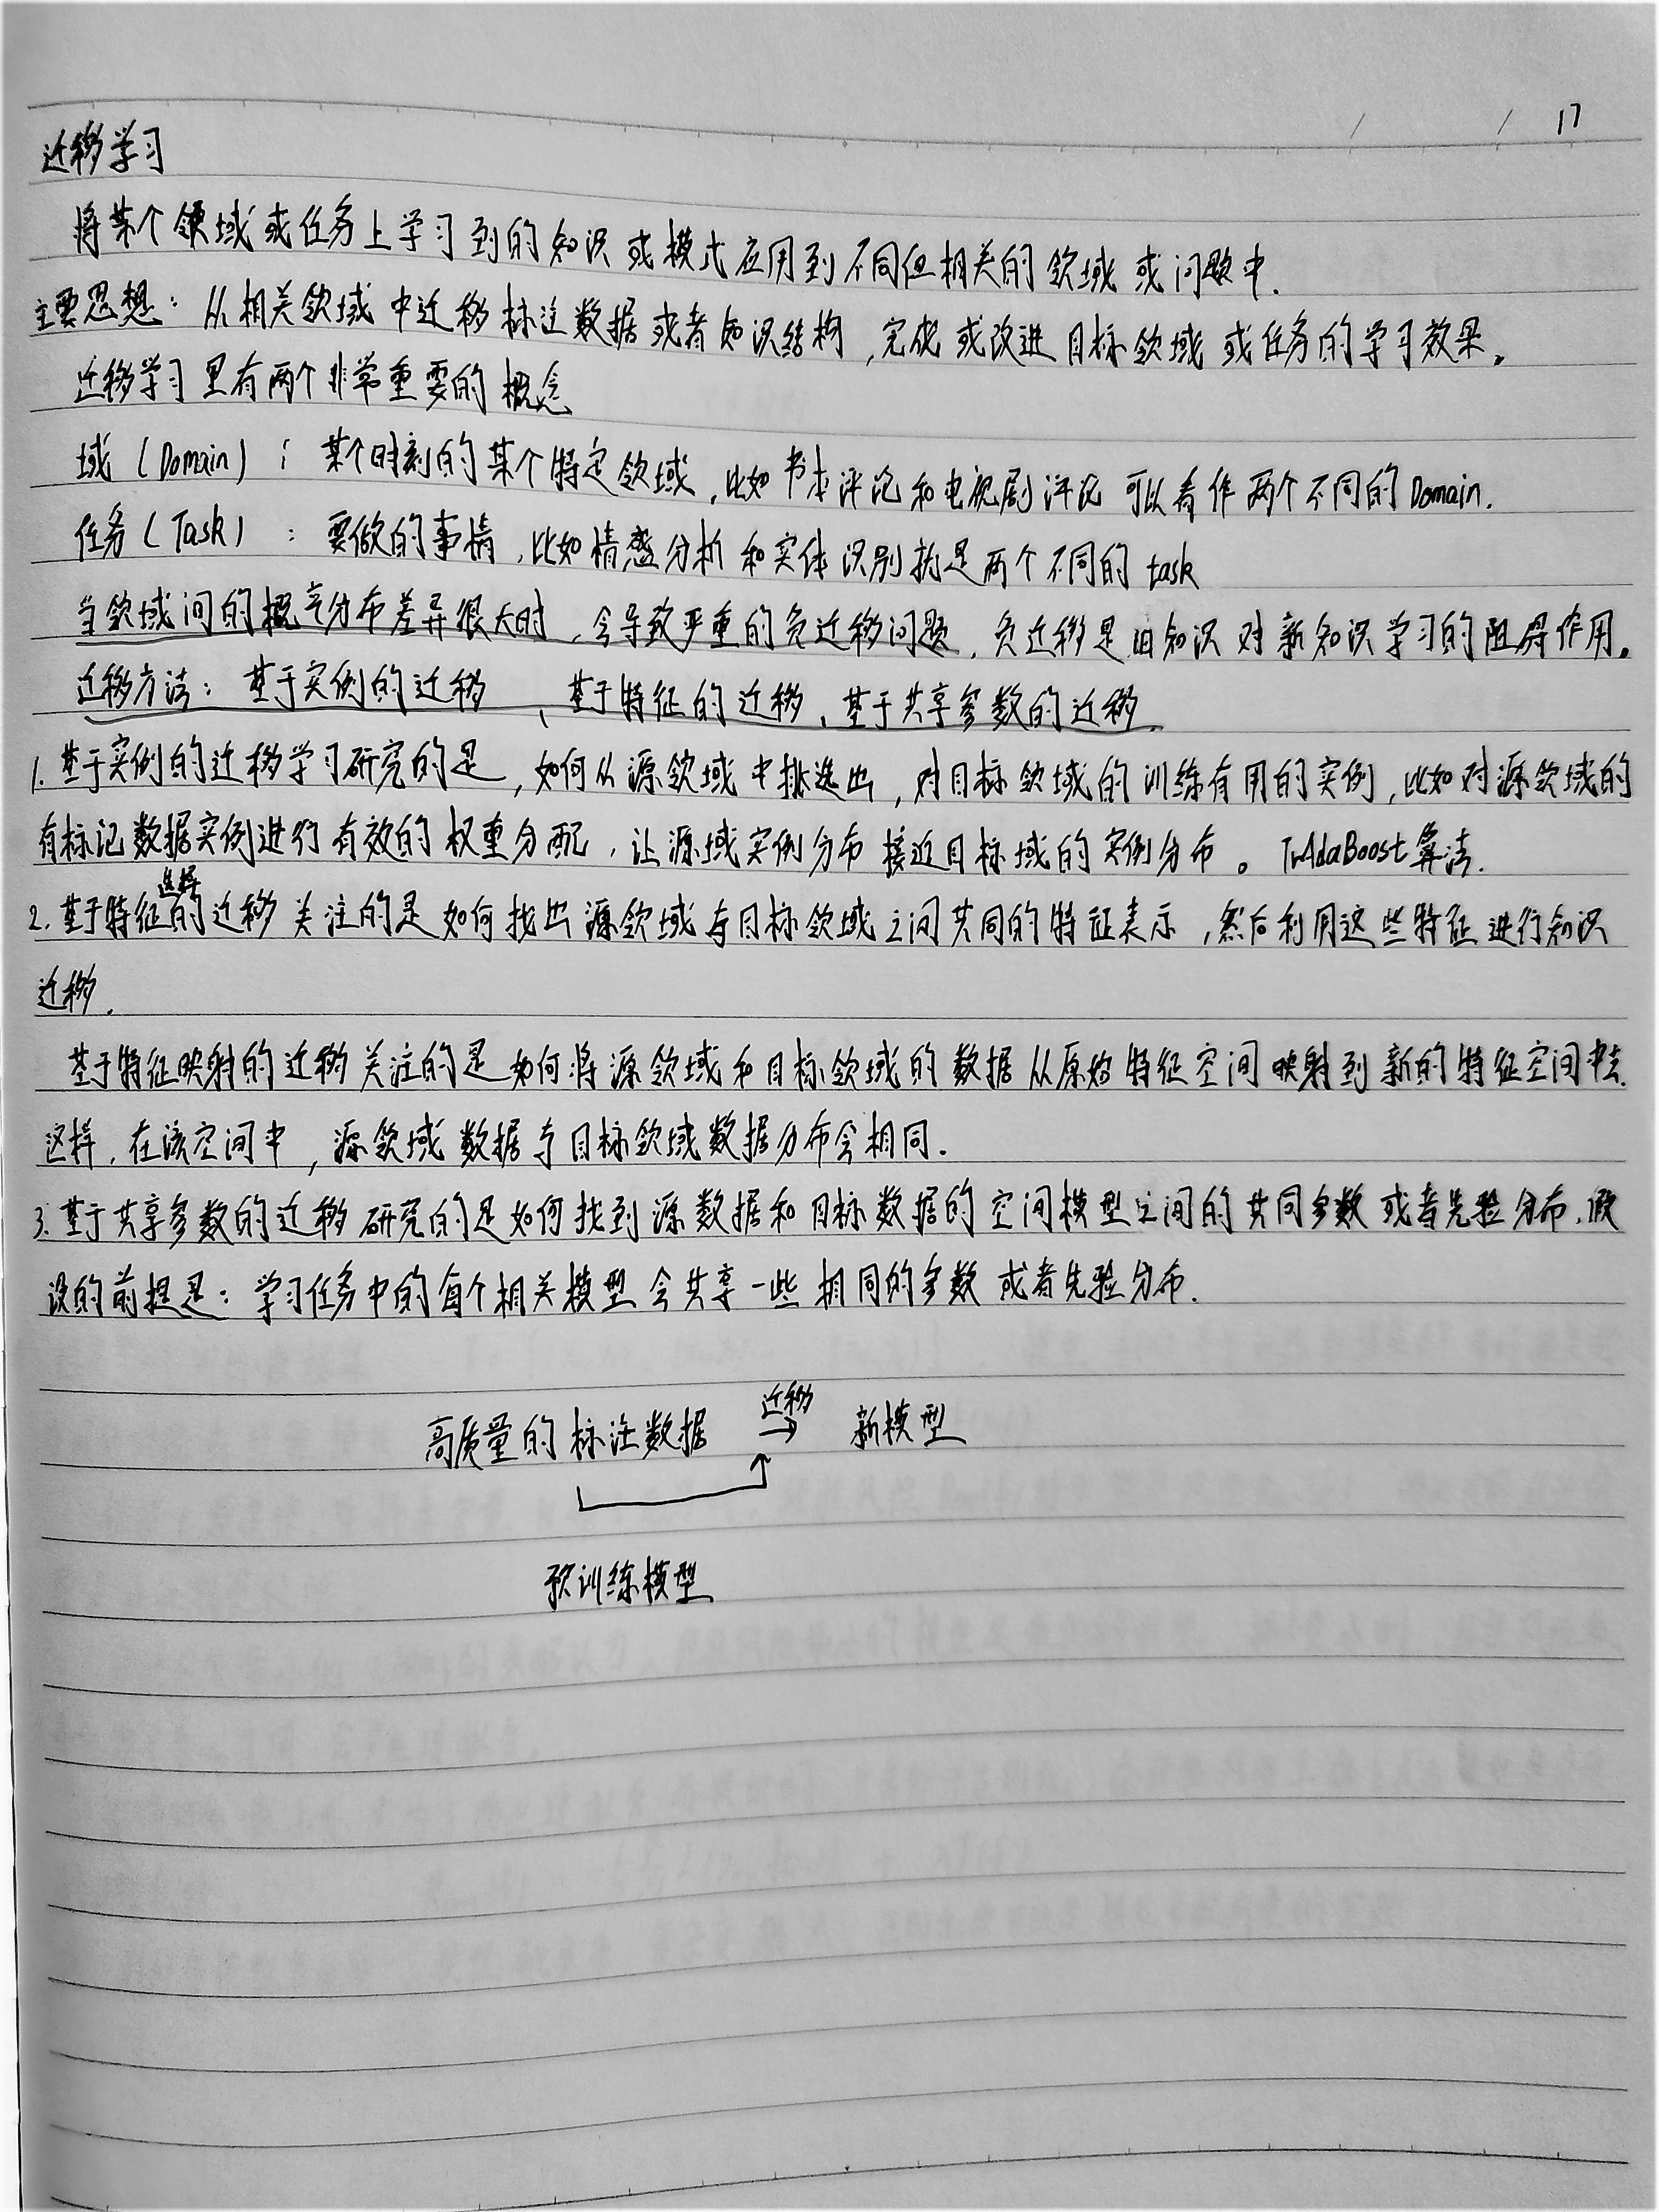 / / 17
迁移学习
将某个领域或任务上学习到的知识或模式应用到不同但相关的领域或问题中.
主要思想：从相关领域中迁移标注数据或者知识结构,完成或改进目标领域或任务的学习效果。
迁移学习里有两个非常重要的概念
域(Domain)：某个时刻的某个特定领域,比如书本评论和电视剧评论可以看作两个不同的Domain.
任务(Task)：要做的事情,比如情感分析和实体识别就是两个不同的task
当领域间的概率分布差异很大时,会导致严重的负迁移问题,负迁移是旧知识对新知识学习的阻碍作用。
迁移方法：基于实例的迁移、基于特征的迁移、基于共享参数的迁移.
1.基于实例的迁移学习研究的是,如何从源领域中挑选出,对目标领域的训练有用的实例,比如对源领域的
有标记数据实例进行有效的权重分配,让源域实例分布接近目标域的实例分布。TrAdaBoost算法.
2.基于特征选择的迁移关注的是如何找出源领域与目标领域之间共同的特征表示,然后利用这些特征进行知识
迁移.
基于特征映射的迁移关注的是如何将源领域和目标领域的数据从原始特征空间映射到新的特征空间中去.
这样,在该空间中,源领域数据与目标领域数据分布会相同.
3.基于共享参数的迁移研究的是如何找到源数据和目标数据的空间模型之间的共同参数或者先验分布,假
设的前提是：学习任务中的每个相关模型会共享一些相同的参数或者先验分布.
高质量的标注数据 迁移→ 新模型
预训练模型